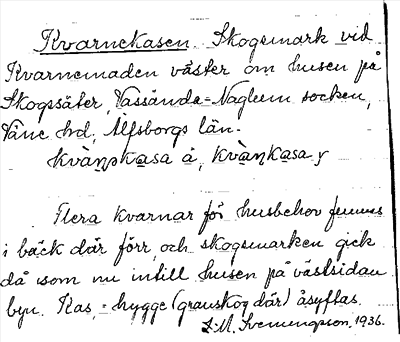 Kvarnekasen. Skogsmark vid
Kvarnemaden väster om husen på
Skogssäter, Vassända-Naglum socken,
Väne hd, Älfsborgs län.
kvàṇpkasa å, kvàṇkasa y
Flera kvarnar för husbehov funnos
i bäck där förr, och skogsmarken gick
då som nu intill husen på västsidan
byn. Kas, = hygge (granskog där) åsyftas.
1936.